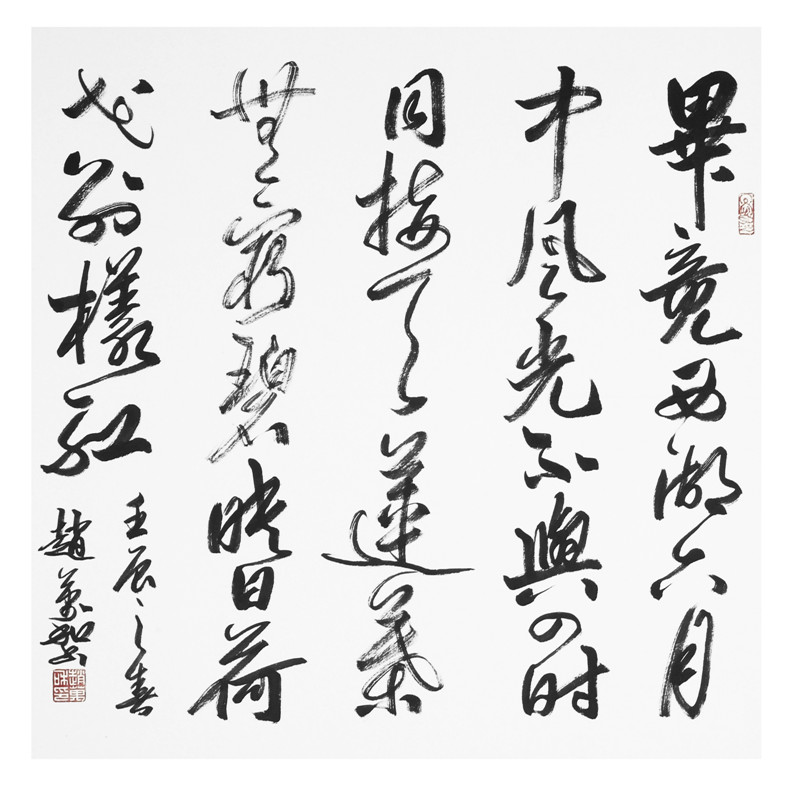 畢竟西湖六月
中風光不與四時
同接天蓮葉
無窮碧映日荷
花別樣紅
壬辰之春
趙萬